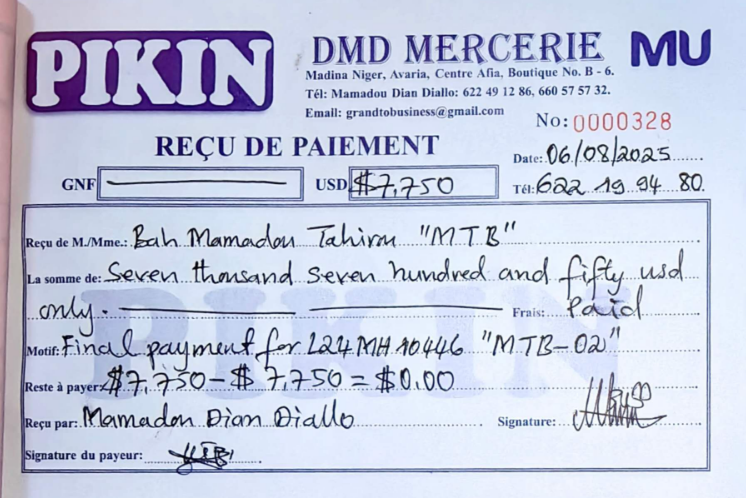 PIKIN
DMD MERCERIE MU
Madina Niger, Avaria, Centre Afia, Boutique No. B - 6.
Tél: Mamadou Dian Diallo: 622 49 12 86, 660 57 57 32.
Email: grandtobusiness@gmail.com
No: 0000328
REÇU DE PAIEMENT
Date: 06/08/2025
GNF USD $7,750 Tél: 622 19 94 80.
Reçu de M./Mme.: Bah Mamadou Tahirou "MTB"
La somme de: Seven thousand seven hundred and fifty usd
only. Frais: Paid
Motif: Final payment for L24MH10446 "MTB-02"
Reste à payer: $7,750 - $7,750 = $0.00
Reçu par: Mamadou Dian Diallo Signature:
Signature du payeur:
PIKIN